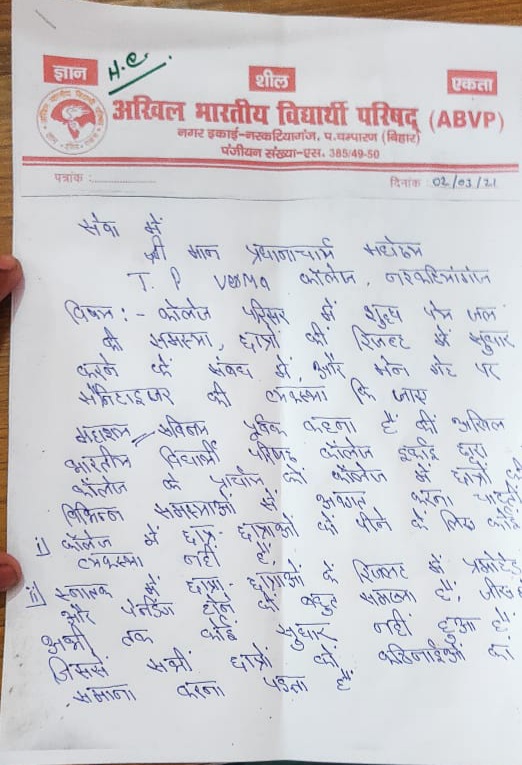 ज्ञान
H.C.
शील
एकता
अखिल भारतीय विद्यार्थी परिषद् (ABVP)
नगर इकाई-नरकटियागंज, प.चम्पारण (बिहार)
पंजीयन संख्या-एस. 385/49-50
पत्रांक :
दिनांक 02/03/21
सेवा में
श्री मान प्रधानाचार्य महोदय
T. P VERMA कॉलेज, नरकटियागंज
विषय :- कॉलेज परिसर में शुद्ध पेय जल
की समस्या, छात्रों की रिजल्ट में सुधार
करने के संबंध में, और मेन गेट पर
सेनिटाइजर की व्यवस्था कि जाए
महाशय सविनय पूर्वक कहना है की अखिल
भारतीय विद्यार्थी परिषद कॉलेज इकाई द्वारा
कॉलेज के प्राचार्य को कॉलेज में छात्रों
विभिन्न समस्याओं से अवगत करना
i) कॉलेज में छात्र छात्राओं को पीने के लिए कोई
व्यवस्था नहीं है.
ii) स्नातक के छात्र छात्राओं के रिजल्ट में प्रमोटेड
और पेनडिंग होने की बहुत समस्या है,
अभी तक कोई सुधार नहीं हुआ है.
जिससे सभी छात्रों को कठिनाईओं को
समाना करना पड़ता है